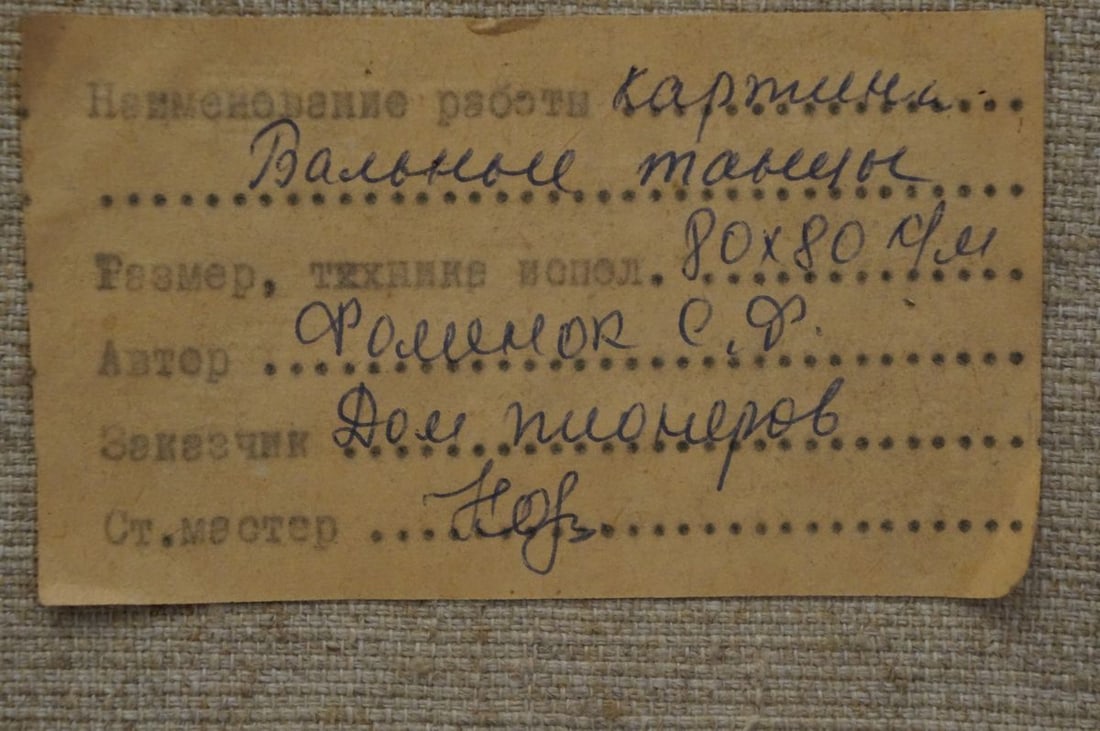 Наименование работы картина
Бальные танцы
Размер, техника испол. 80х80 х/м
Автор Фоменок С.Ф.
Заказчик Дом пионеров
Ст.мастер